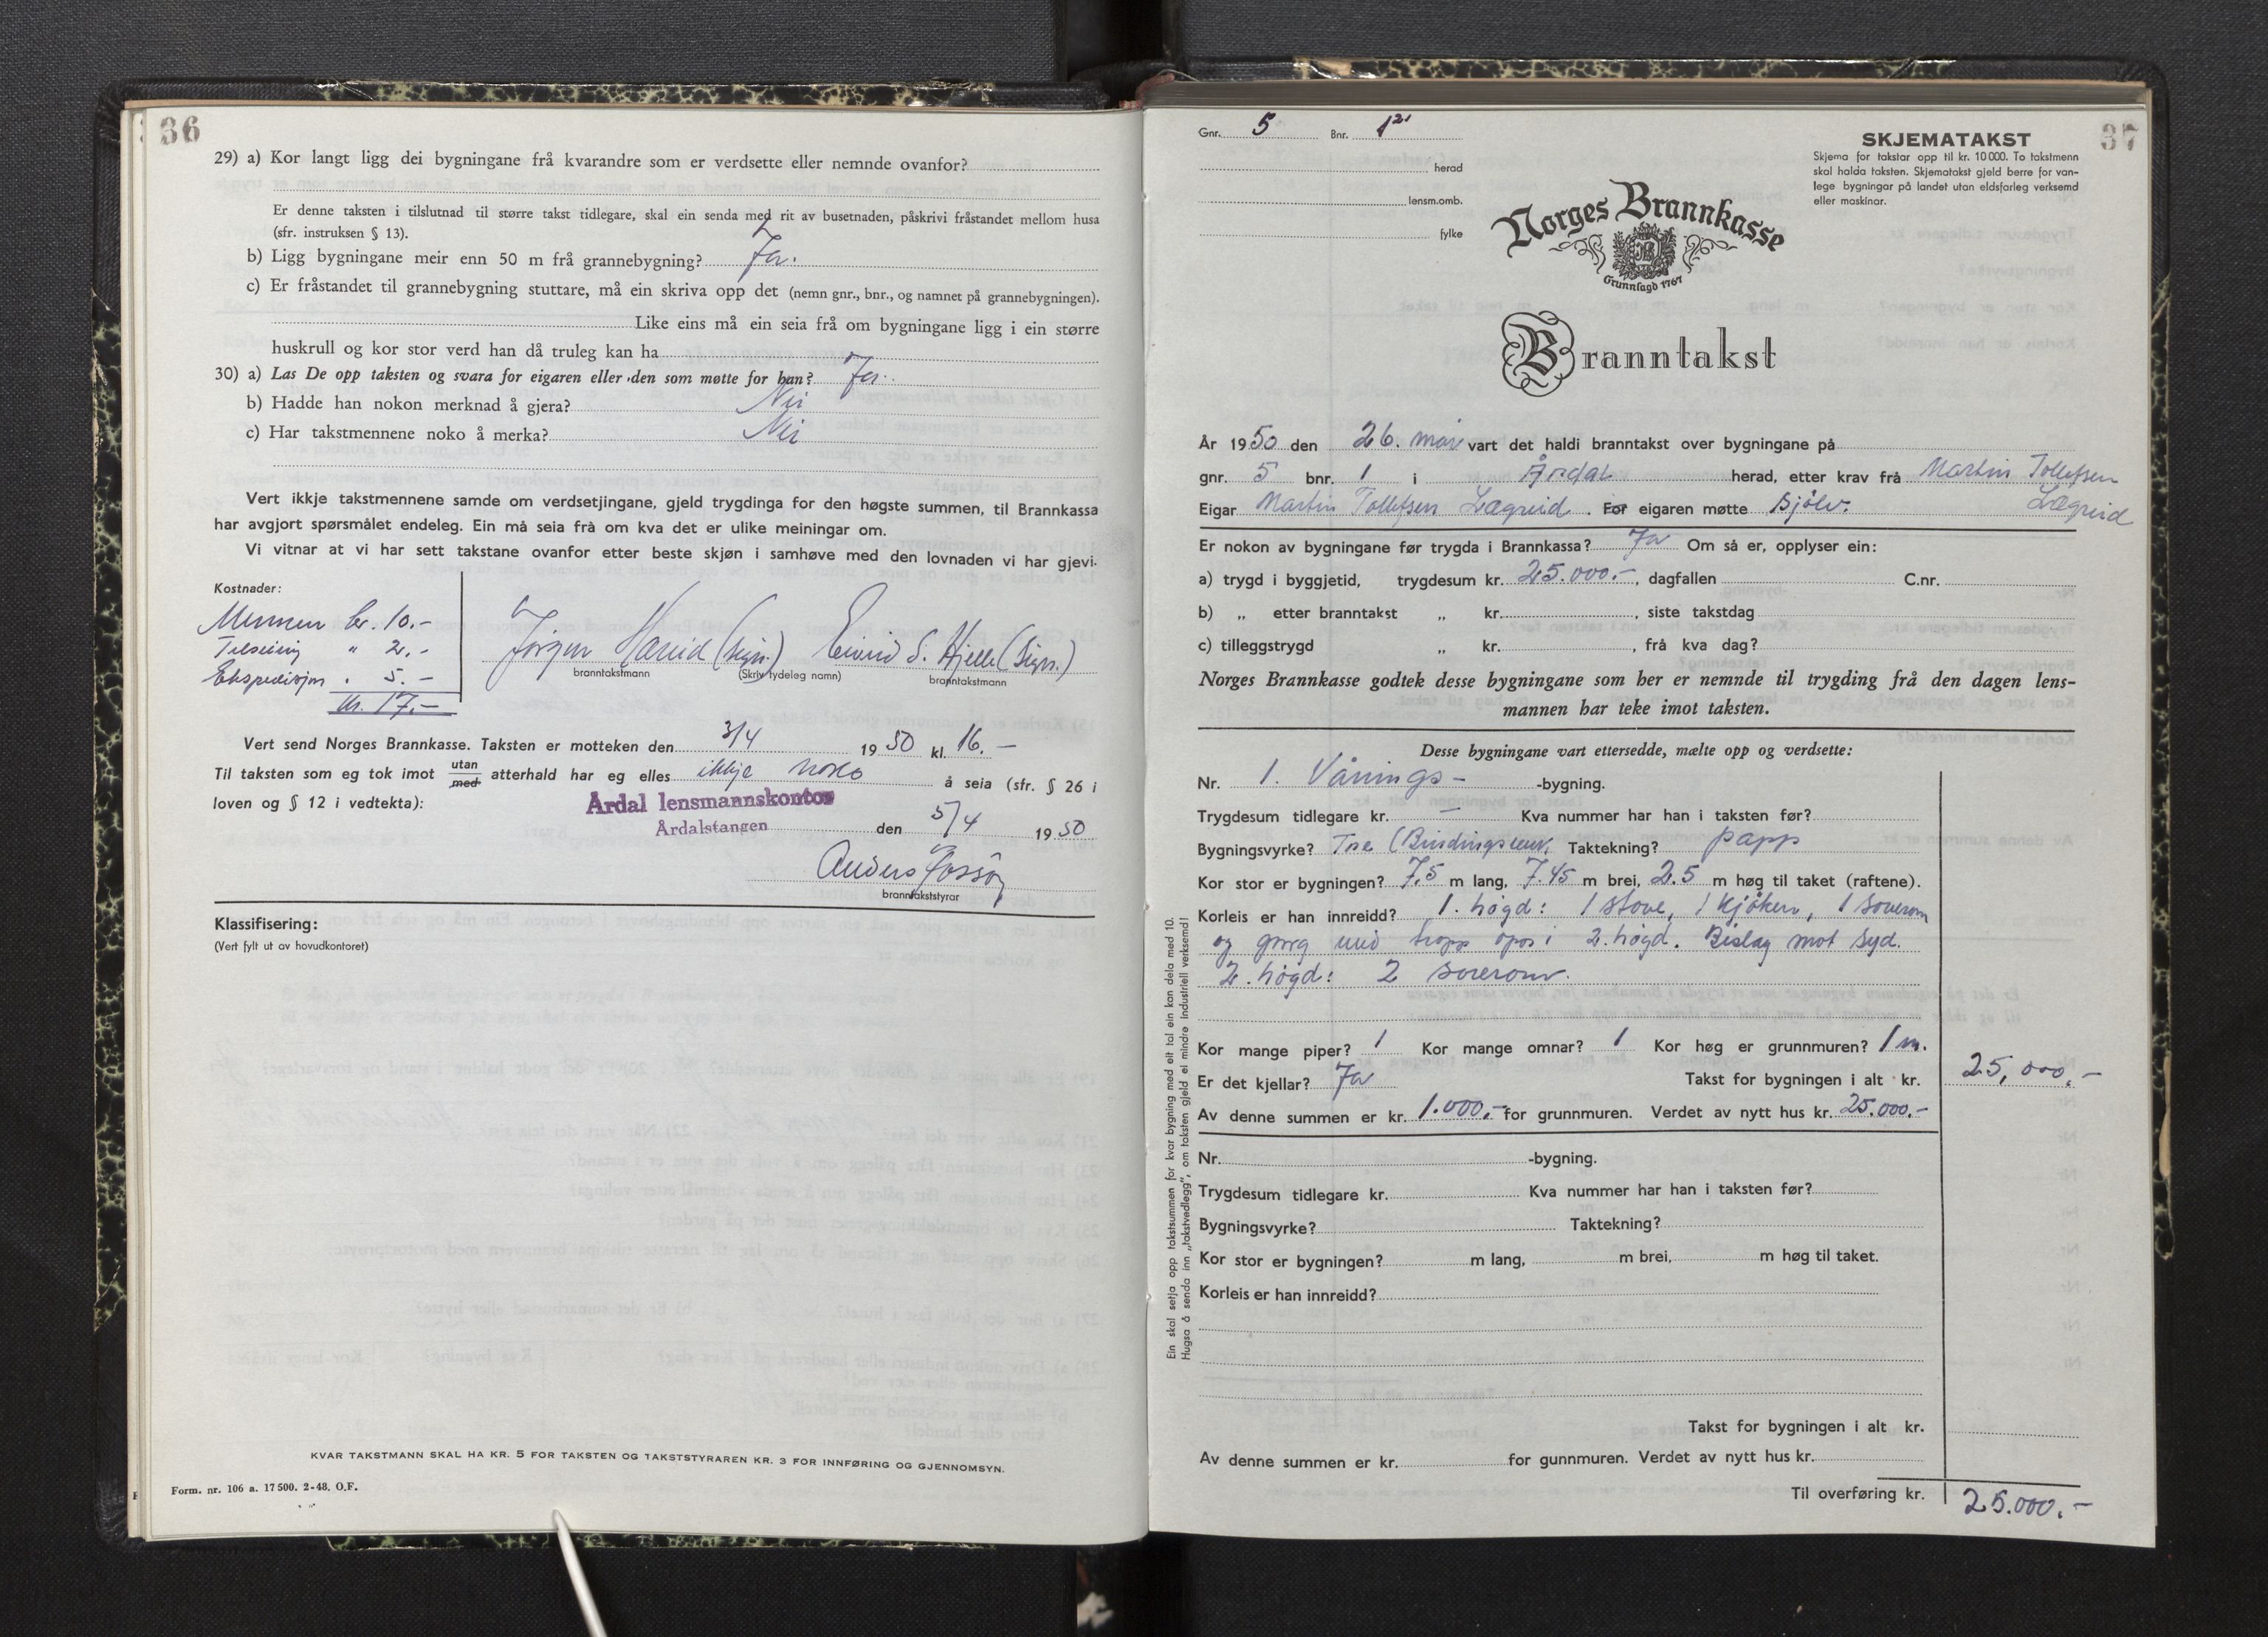 36
29) a) Kor langt ligg dei bygningane frå kvarandre som er verdsette eller nemnde ovanfor?
Er denne taksten i tilslutnad til større takst tidlegare, skal ein senda med rit av busetnaden, påskrivi fråstandet mellom husa
(sfr. instruksen § 13).
b) Ligg bygningane meir enn 50 m frå grannebygning? Ja.
c) Er fråstandet til grannebygning stuttare, må ein skriva opp det (nemn gnr., bnr., og namnet på grannebygningen).
Like eins må ein seia frå om bygningane ligg i ein større
huskrull og kor stor verd han då truleg kan ha
30) a) Las De opp taksten og svara for eigaren eller den som møtte for han? Ja.
b) Hadde han nokon merknad å gjera? Nei
c) Har takstmennene noko å merka? Nei
Vert ikkje takstmennene samde om verdsetjingane, gjeld trygdinga for den høgste summen, til Brannkassa
har avgjort spørsmålet endeleg. Ein må seia frå om kva det er ulike meiningar om.
Vi vitnar at vi har sett takstane ovanfor etter beste skjøn i samhøve med den lovnaden vi har gjevi.
Kostnader:
Mennen kr. 10.-
Tilseiing " 2.-
Ekspedisjon . 5.-
Kr. 17.-
Jørgen (sign.) Eivind S. Hjelle (Sign.)
branntakstmann (Skriv tydeleg namn) branntakstmann
Vert send Norges Brannkasse. Taksten er motteken den 3/4 1950 kl. 16.-
Til taksten som eg tok imot utan/med atterhald har eg elles ikkje noko å seia (sfr. § 26 i
loven og § 12 i vedtekta):
Årdal lensmannskontor
Årdalstangen den 5/4 1950
Anders
branntakststyrar
Klassifisering:
(Vert fylt ut av hovudkontoret)
KVAR TAKSTMANN SKAL HA KR. 5 FOR TAKSTEN OG TAKSTSTYRAREN KR. 3 FOR INNFØRING OG GJENNOMSYN.
Form. nr. 106 a. 17 500. 2-48. O.F.
37
Gnr. 5 Bnr. 1
herad
lensm.omb.
fylke
SKJEMATAKST
Skjema for takstar opp til kr. 10 000. To takstmenn
skal halda taksten. Skjematakst gjeld berre for van-
lege bygningar på landet utan eldsfarleg verksemd
eller maskinar.
Norges Brannkasse
Grunnlagd 1767
Branntakst
År 1950 den 26. mai vart det haldi branntakst over bygningane på
gnr. 5 bnr. 1 i Årdal herad, etter krav frå Martin Tollefsen
Lægreid
Eigar Martin Tollefsen Lægreid. For eigaren møtte sjølv.
Er nokon av bygningane før trygda i Brannkassa? Ja Om så er, opplyser ein:
a) trygd i byggjetid, trygdesum kr. 25.000.-, dagfallen C.nr.
b) „ etter branntakst „ kr. , siste takstdag
c) tilleggstrygd „ kr. , frå kva dag?
Norges Brannkasse godtek desse bygningane som her er nemnde til trygding frå den dagen lens-
mannen har teke imot taksten.
Desse bygningane vart ettersedde, mælte opp og verdsette:
Nr. 1. Vånings- -bygning.
Trygdesum tidlegare kr. - Kva nummer har han i taksten før?
Bygningsvyrke? Tre (Bindingsverk Taktekning? papp
Kor stor er bygningen? 7,5 m lang, 7.45 m brei, 2.5 m høg til taket (raftene).
Korleis er han innreidd? 1. høgd: 1 stove, 1 kjøken, 1 soverom
og gang med tropp opp i 2. høgd. Bislag mot syd.
2. høgd: 2 soverom.
Kor mange piper? 1 Kor mange omnar? 1 Kor høg er grunnmuren? 1 m.
Er det kjellar? Ja Takst for bygningen i alt kr. 25,000.-
Av denne summen er kr. 1.000,- for grunnmuren. Verdet av nytt hus kr. 25.000.-
Nr. -bygning.
Trygdesum tidlegare kr. Kva nummer har han i taksten før?
Bygningsvyrke? Taktekning?
Kor stor er bygningen? m lang, m brei, m høg til taket.
Korleis er han innreidd?
Takst for bygningen i alt kr.
Av denne summen er kr. for gunnmuren. Verdet av nytt hus kr.
Til overføring kr. 25.000.-
Ein skal setja opp takstsummen for kvar bygning med eit tal ein kan dela med 10.
Hugsa å senda inn „takstvedlegg”, om taksten gjeld ei mindre industriell verksemd!